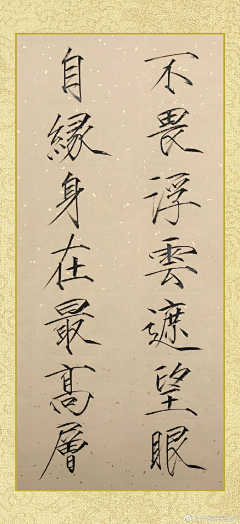 不畏浮雲遮望眼
自緣身在最高層